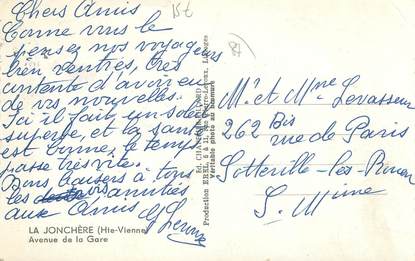 Chers Amis
15€
Comme vous le
pensez nos voyageurs
bien rentrés, très
contents d'avoir eu
de vos nouvelles.
Ici il fait un soleil
superbe, et la santé
est bonne, le temps
passe très vite.
Bons baisers à tous
les amitiés
aux Amis
LA JONCHÈRE (Hte-Vienne)
Avenue de la Gare
Production ERKL, 5 à 11, rue Pierre-Leroux, Limoges
Véritable photo au bromure
Mr et Mme Levasseur
262 Bis
rue de Paris
Sotteville-les-Rouen
S. Mime